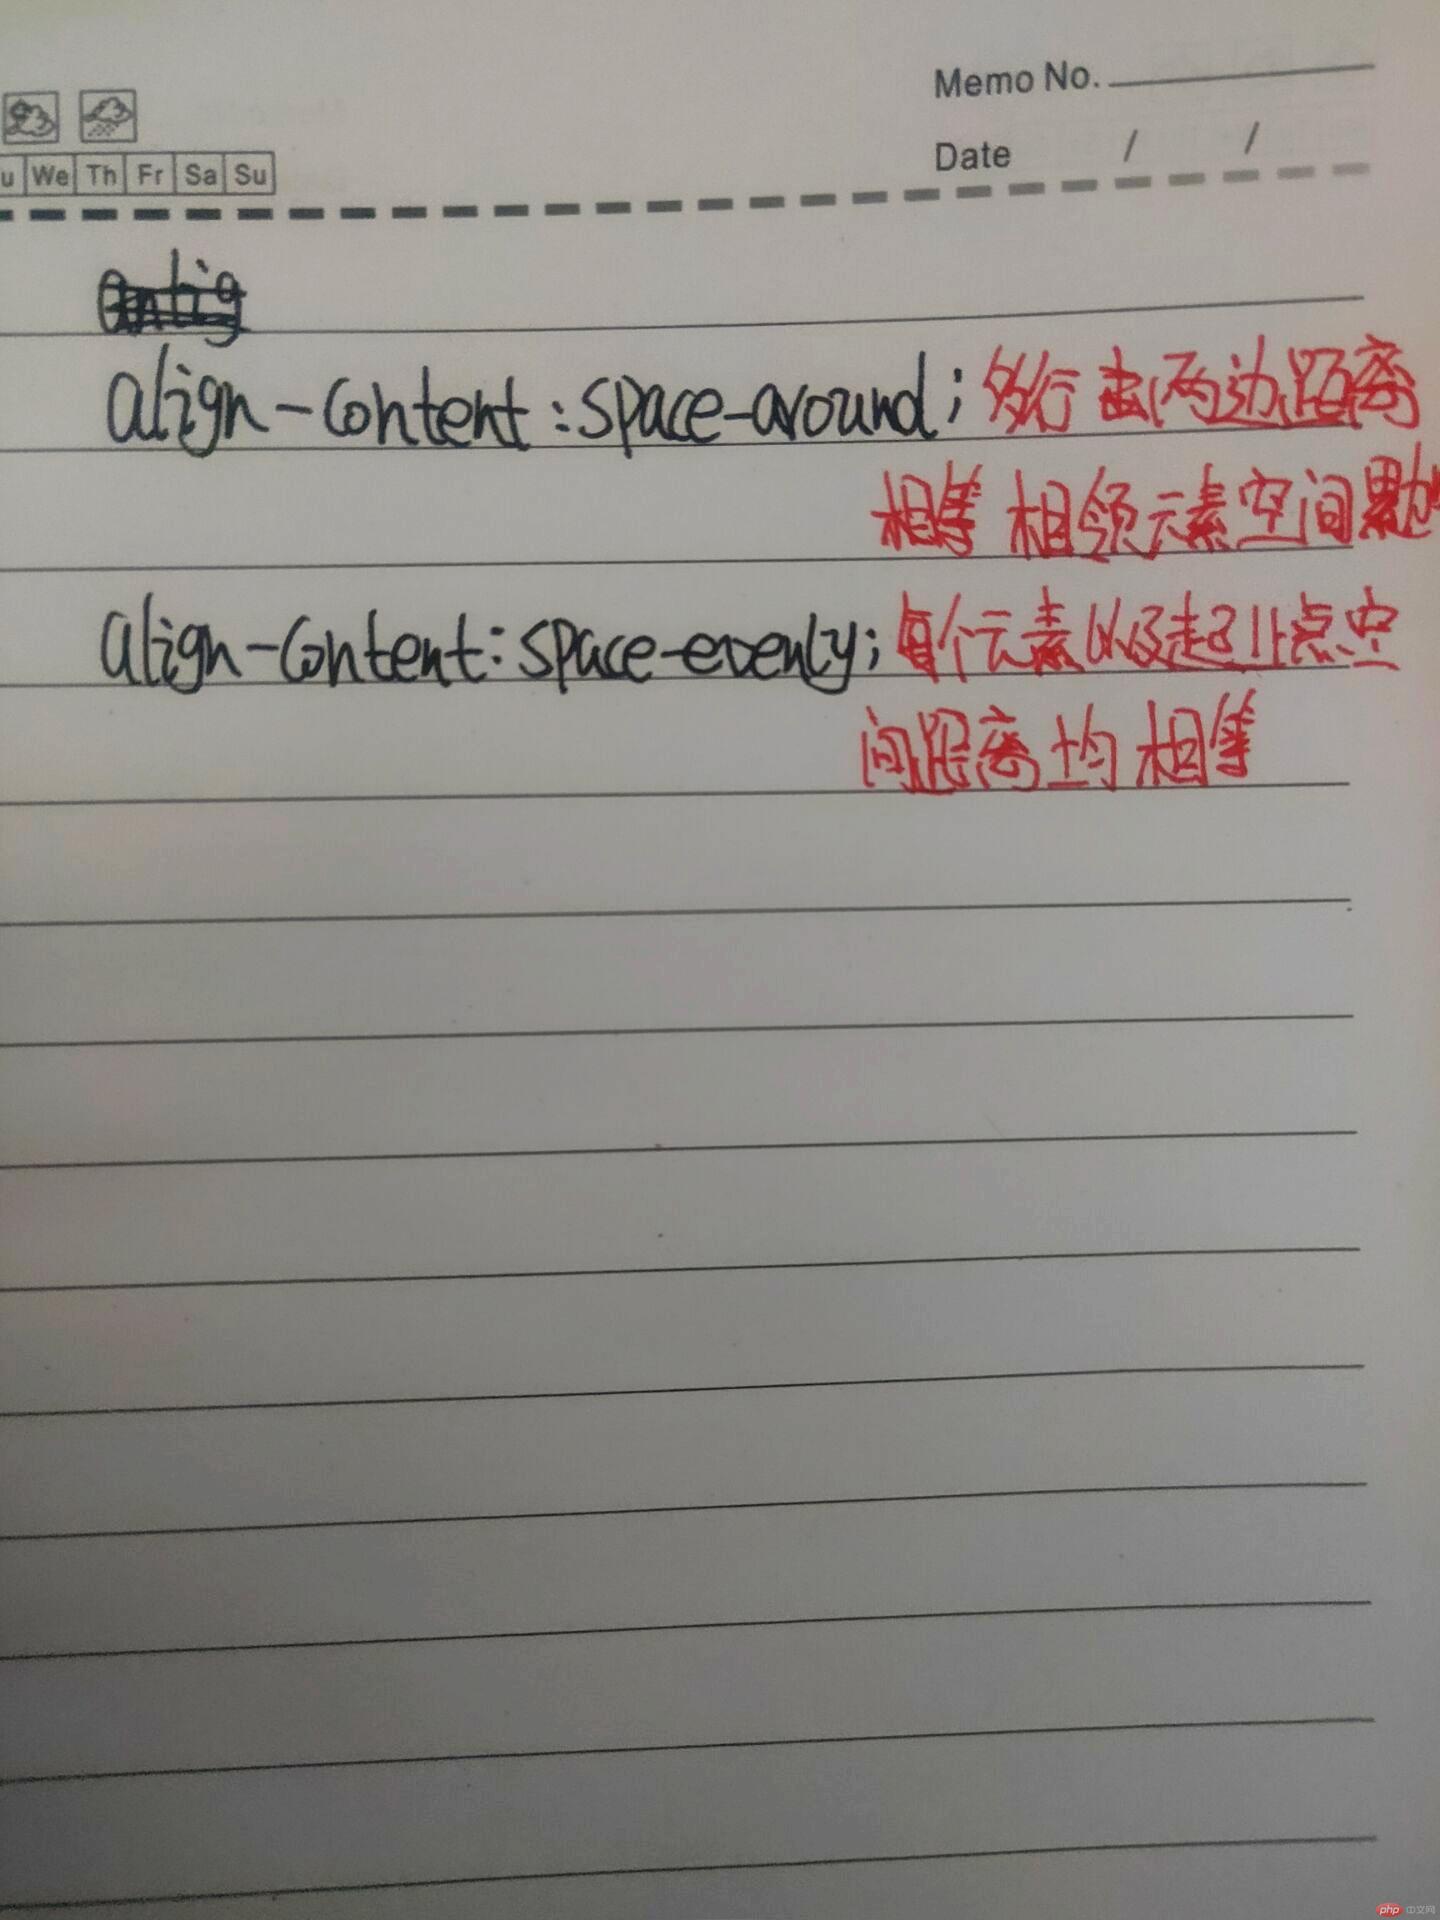 Memo No.
Date / /
u We Th Fr Sa Su
align-content:space-around; 多行 两边距离
相等 相领元素空间累加
align-content:space-evenly; 每个元素以及起止点空
间距离均相等
php 中文网